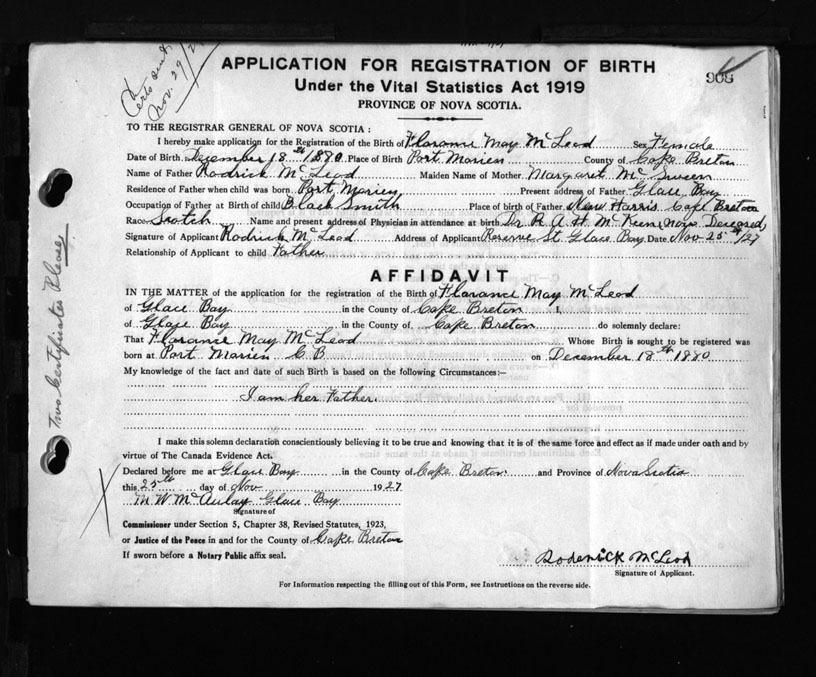 Certs sent
Nov. 29/27
APPLICATION FOR REGISTRATION OF BIRTH
908
Under the Vital Statistics Act 1919
PROVINCE OF NOVA SCOTIA.
TO THE REGISTRAR GENERAL OF NOVA SCOTIA :
I hereby make application for the Registration of the Birth of Florance May McLeod Sex Female
Date of Birth December 18th 1880 Place of Birth Port Morien County of Cape Breton
Name of Father Rodrick McLeod Maiden Name of Mother Margarit McSween
Residence of Father when child was born Port Morien Present address of Father Glace Bay
Occupation of Father at Birth of child Black Smith Place of birth of Father New Harris Cape Breton
Race Scotch Name and present address of Physician in attendance at birth Dr R. A. H. McKeen, now Deceased,
Signature of Applicant Rodrick McLeod Address of Applicant Reserve St Glace Bay Date Nov 25th/27
Relationship of Applicant to child Father
AFFIDAVIT
IN THE MATTER of the application for the registration of the Birth of Florance May McLeod
of Glace Bay in the County of Cape Breton I,
of Glace Bay in the County of Cape Breton do solemnly declare:
That Florance May McLeod Whose Birth is sought to be registered was
born at Port Morien C B on December 18th 1880
My knowledge of the fact and date of such Birth is based on the following Circumstances:—
I am her Father.
I make this solemn declaration conscientiously believing it to be true and knowing that it is of the same force and effect as if made under oath and by
virtue of The Canada Evidence Act.
Declared before me at Glace Bay in the County of Cape Breton and Province of Nova Scotia
this 25th day of Nov 1927
M. W. McAulay Glace Bay
Signature of
Commissioner under Section 5, Chapter 38, Revised Statutes, 1923,
or Justice of the Peace in and for the County of Cape Breton
If sworn before a Notary Public affix seal.
Roderick McLeod
Signature of Applicant.
For Information respecting the filling out of this Form, see Instructions on the reverse side.
Two Certificates Please